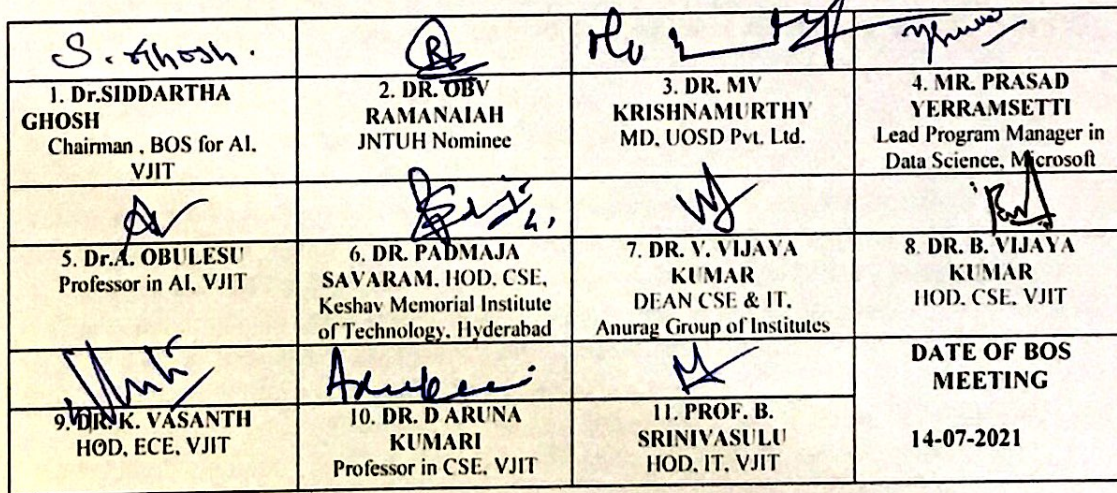 S. Ghosh.
1. Dr.SIDDARTHA
GHOSH
Chairman , BOS for AI.
VJIT
2. DR. OBV
RAMANAIAH
JNTUH Nominee
3. DR. MV
KRISHNAMURTHY
MD, UOSD Pvt. Ltd.
4. MR. PRASAD
YERRAMSETTI
Lead Program Manager in
Data Science, Microsoft
5. Dr.A. OBULESU
Professor in AI, VJIT
6. DR. PADMAJA
SAVARAM. HOD. CSE,
Keshav Memorial Institute
of Technology, Hyderabad
7. DR. V. VIJAYA
KUMAR
DEAN CSE & IT.
Anurag Group of Institutes
8. DR. B. VIJAYA
KUMAR
HOD. CSE. VJIT
9. DR. K. VASANTH
HOD, ECE, VJIT
10. DR. D ARUNA
KUMARI
Professor in CSE. VJIT
11. PROF. B.
SRINIVASULU
HOD. IT. VJIT
DATE OF BOS
MEETING
14-07-2021